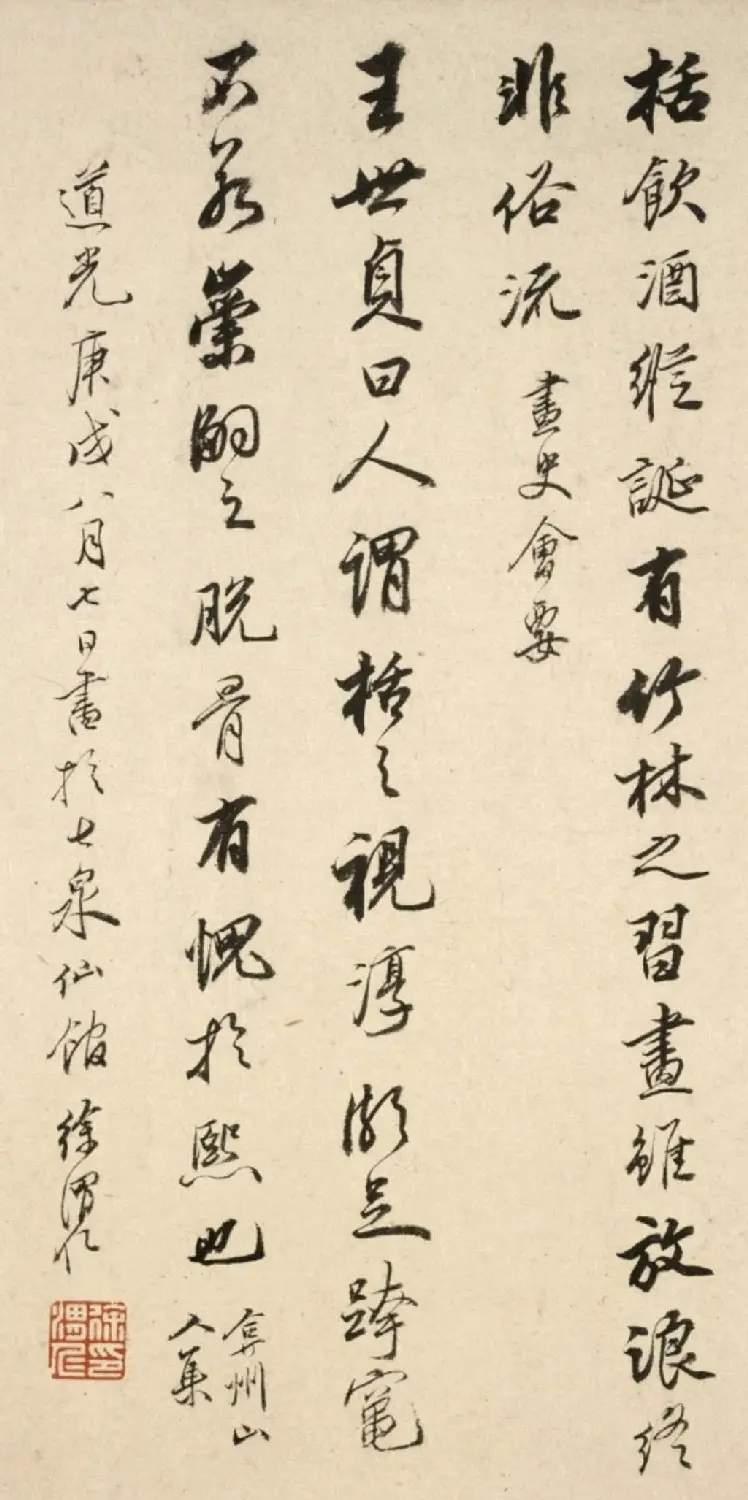 括飲酒縱誕有竹林之習畫雖放浪終
非俗流 畫史會要
王世貞曰人謂括之視淳頗足跨竈
不若崇嗣之脱骨有愧於熙也 弇州山
人集
道光庚戌八月七日書於七泉仙館 徐渭仁
徐印
渭仁